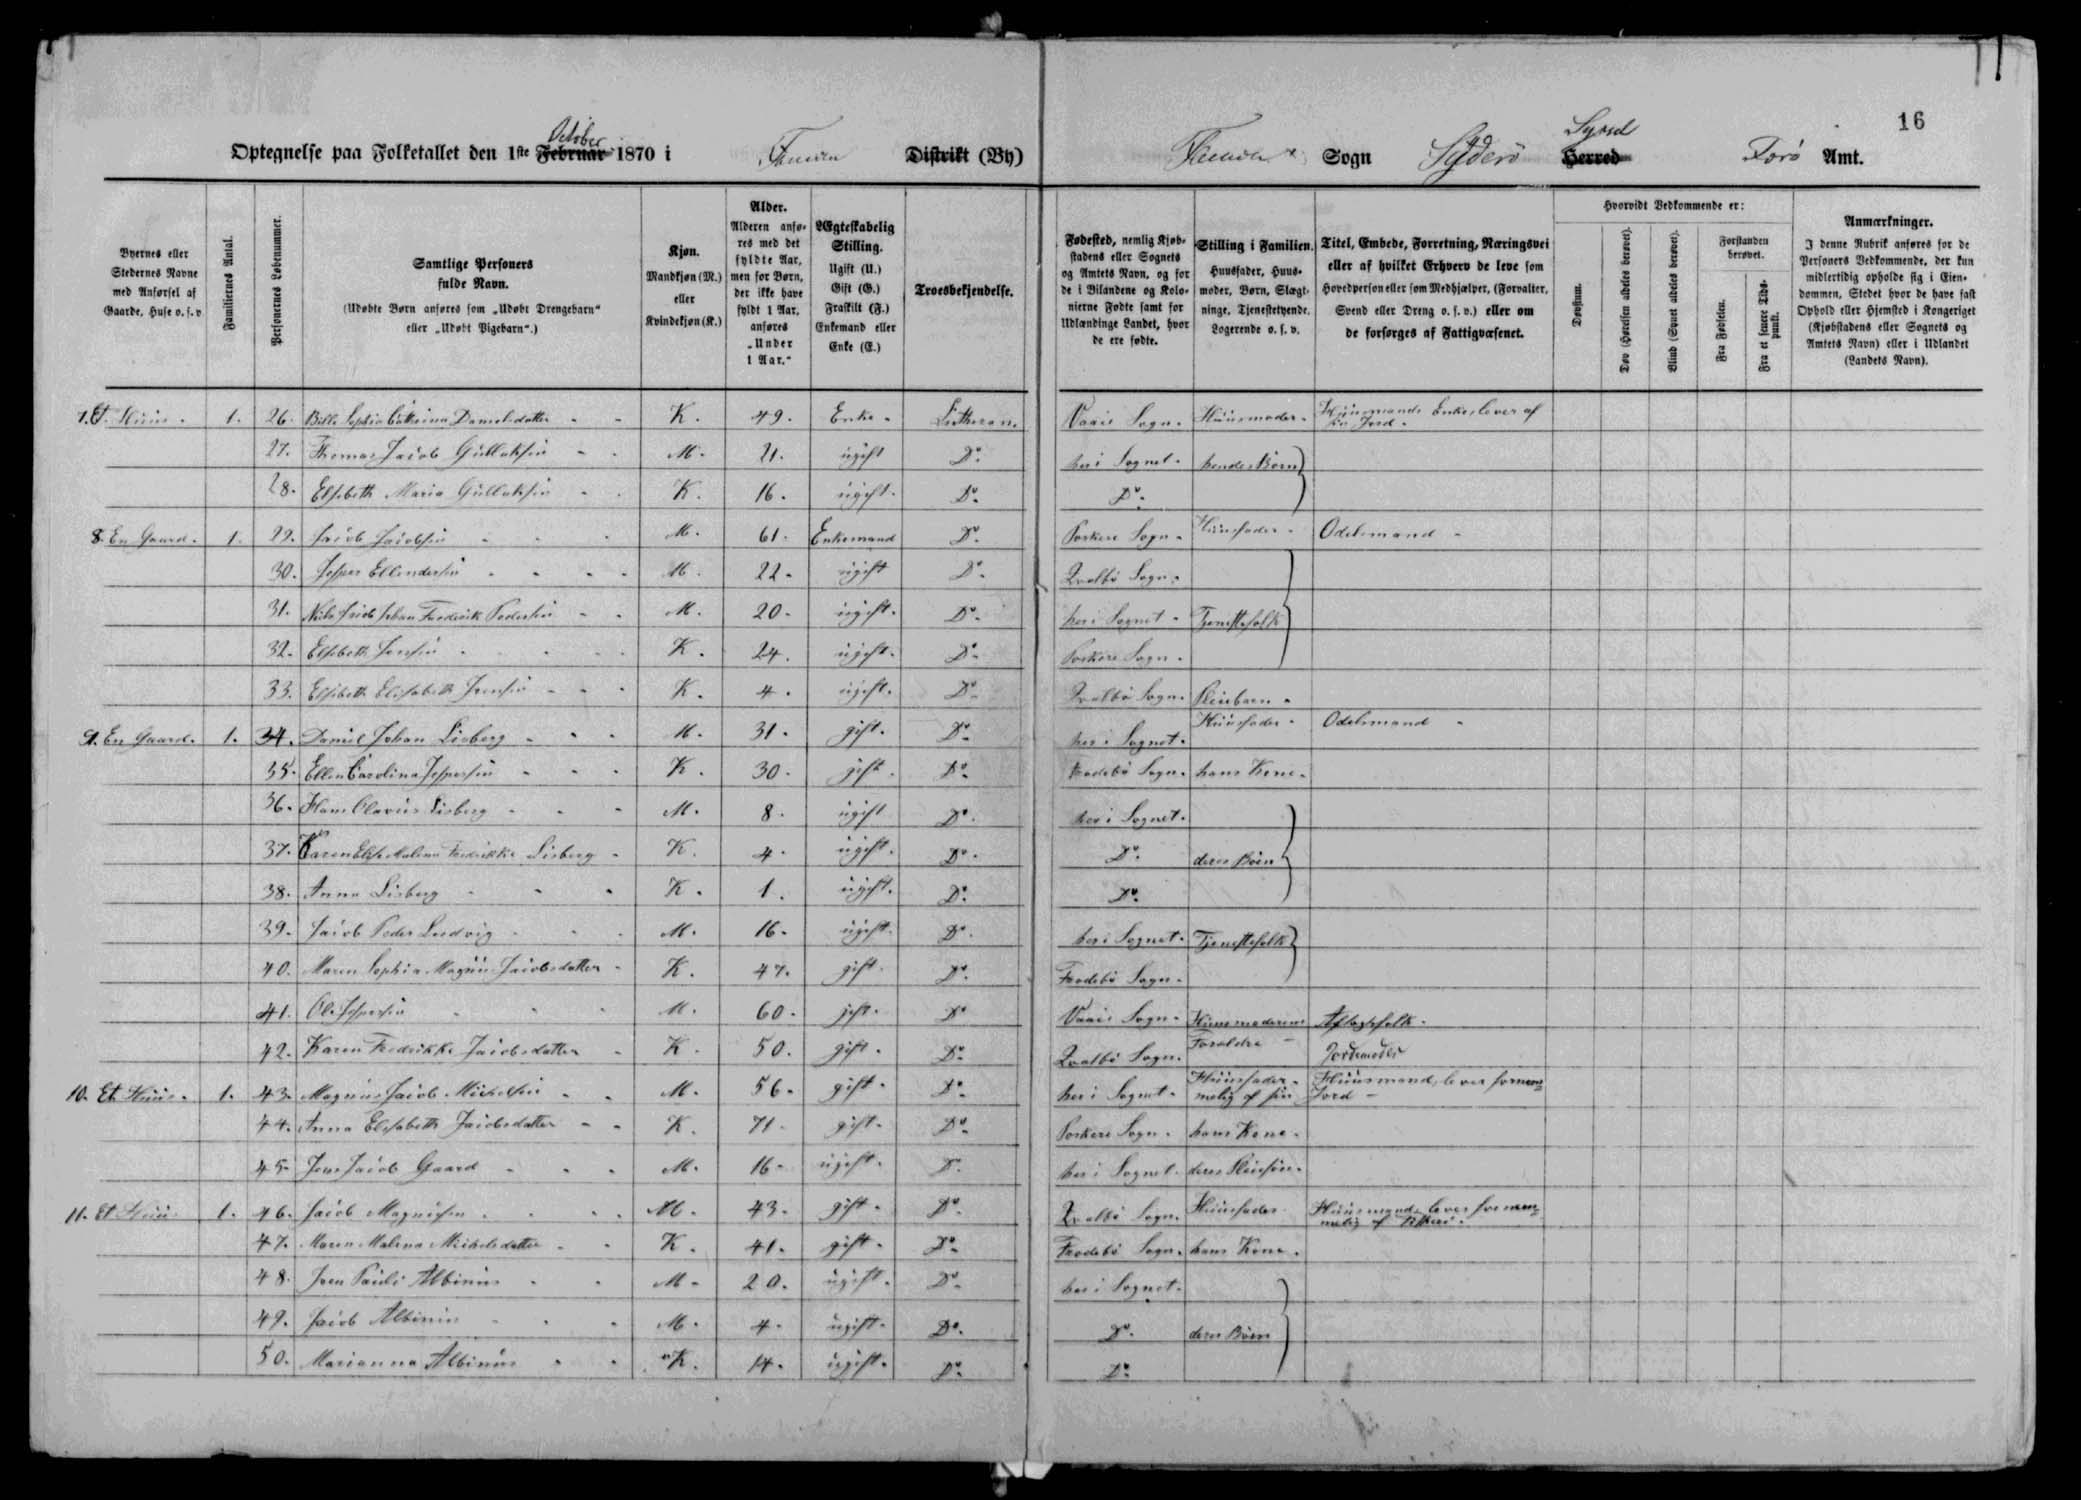 16
Optegnelse paa Folketallet den 1ste Februar October 1870 i Famien Distrikt (By) Sogn Syderö Herred Syssel Forö Amt.
Byernes eller Stedernes Navne med Anførsel af Gaarde, Huse o. s. v.
Familiernes Antal.
Personernes Løbenummer.
Samtlige Personers fulde Navn. (Udøbte Børn anføres som „Udøbt Drengebarn“ eller „Udøbt Pigebarn“.)
Kjøn. Mandkjøn (M.) eller Kvindekjøn (K.)
Alder. Alderen anføres med det fyldte Aar, men for Børn, der ikke have fyldt 1 Aar, anføres „Under 1 Aar.“
Ægteskabelig Stilling. Ugift (U.) Gift (G.) Fraskilt (F.) Enkemand eller Enke (E.)
Troesbekjendelse.
Fødested, nemlig Kjøbstadens eller Sognets og Amtets Navn, og for de i Bilandene og Kolonierne Fødte samt for Udlændinge Landet, hvor de ere fødte.
Stilling i Familien. Huusfader, Huusmoder, Børn, Slægtninge, Tjenestetyende, Logerende o. s. v.
Titel, Embede, Forretning, Næringsvei eller af hvilket Erhverv de leve som Hovedperson eller som Medhjælper, (Forvalter, Svend eller Dreng o. s. v.) eller om de forsørges af Fattigvæsenet.
Hvorvidt Vedkommende er:
Døvstum.
Døv (Hørelsen aldeles berøvet).
Blind (Synet aldeles berøvet).
Forstanden berøvet.
Fra Fødselen.
Fra et senere Tidspunkt.
Anmærkninger. I denne Rubrik anføres for de Personers Vedkommende, der kun midlertidig opholde sig i Eiendommen, Stedet hvor de have fast Ophold eller Hjemsted i Kongeriget (Kjøbstadens eller Sognets og Amtets Navn) eller i Udlandet (Landets Navn).
7. Et Huus. 1. 26. Bille Sophia Cathrina Danielsdatter K. 49. Enke Lutheran. Vaais Sogn. Huusmoder. Huusmands Enke, lever af Jord.
27. Thomas Jacob Gullaksen M. 21. ugift Do. her i Sognet. hendes Børn
28. Elsebeth Maria Gullaksen K. 16. ugift. Do. Do.
8. En Gaard. 1. 29. Jacob Jacobsen M. 61. Enkemand Do. Porkere Sogn. Huusfader. Odelsmand
30. Jesper Ellendersen M. 22. ugift Do. Qvalbö Sogn.
31. Niels Jacob Johan Frederik Pedersen M. 20. ugift. Do. her i Sognet. Tjenestefolk
32. Elsebeth Jensen K. 24. ugift. Do. Porkere Sogn.
33. Elsebeth Elisabeth Jensen K. 4. ugift. Do. Qvalbö Sogn. Pleiebarn.
9. En Gaard. 1. 34. Daniel Johan Lisberg M. 31. gift. Do. her i Sognet. Huusfader. Odelsmand
35. Ellen Carolina Jespersen K. 30. gift. Do. Frodebö Sogn. hans Kone.
36. Hans Olavus Lisberg M. 8. ugift Do. her i Sognet.
37. Karen Else Malena Fredrikke Lisberg K. 4. ugift. Do. Do. deres Børn
38. Anna Lisberg K. 1. ugift. Do. Do.
39. Jacob Peder Ludvig M. 16. ugift. Do. her i Sognet. Tjenestefolk
40. Maren Sophia Jacobsdatter K. 47. gift. Do. Frodebö Sogn.
41. Ole Jespersen M. 60. gift. Do. Vaais Sogn. Huusmoderens Aftægtsfolk.
42. Karen Fredrikke Jacobsdatter K. 50. gift. Do. Qvalbö Sogn. Forældre Jordemoder
10. Et Huus. 1. 43. Magnus Jacob Michelsen M. 56. gift. Do. her i Sognet. Huusfader. Huusmand, lever fornem=
melig af sin Jord
44. Anna Elisabeth Jacobsdatter K. 71. gift. Do. Porkere Sogn. hans Kone.
45. Jens Jacob Gaard M. 16. ugift. Do. her i Sognet. deres Pleiesön.
11. Et Huus 1. 46. Jacob Magnusen M. 43. gift. Do. Qvalbö Sogn. Huusfader Huusmand, lever fornem=
melig af Fiskeri.
47. Maren Malena Michelsdatter K. 41. gift. Do. Frodebö Sogn. hans Kone.
48. Joen Pauli Albinus M. 20. ugift. Do. her i Sognet.
49. Jacob Albinus M. 4. ugift. Do. Do. deres Børn
50. Marianna Albinus K. 14. ugift. Do. Do.